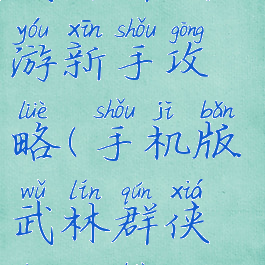 yóu xīn shǒu gōng
游新手攻
lüè shǒu jī bǎn
略(手机版
wǔ lín qún xiá
武林群侠